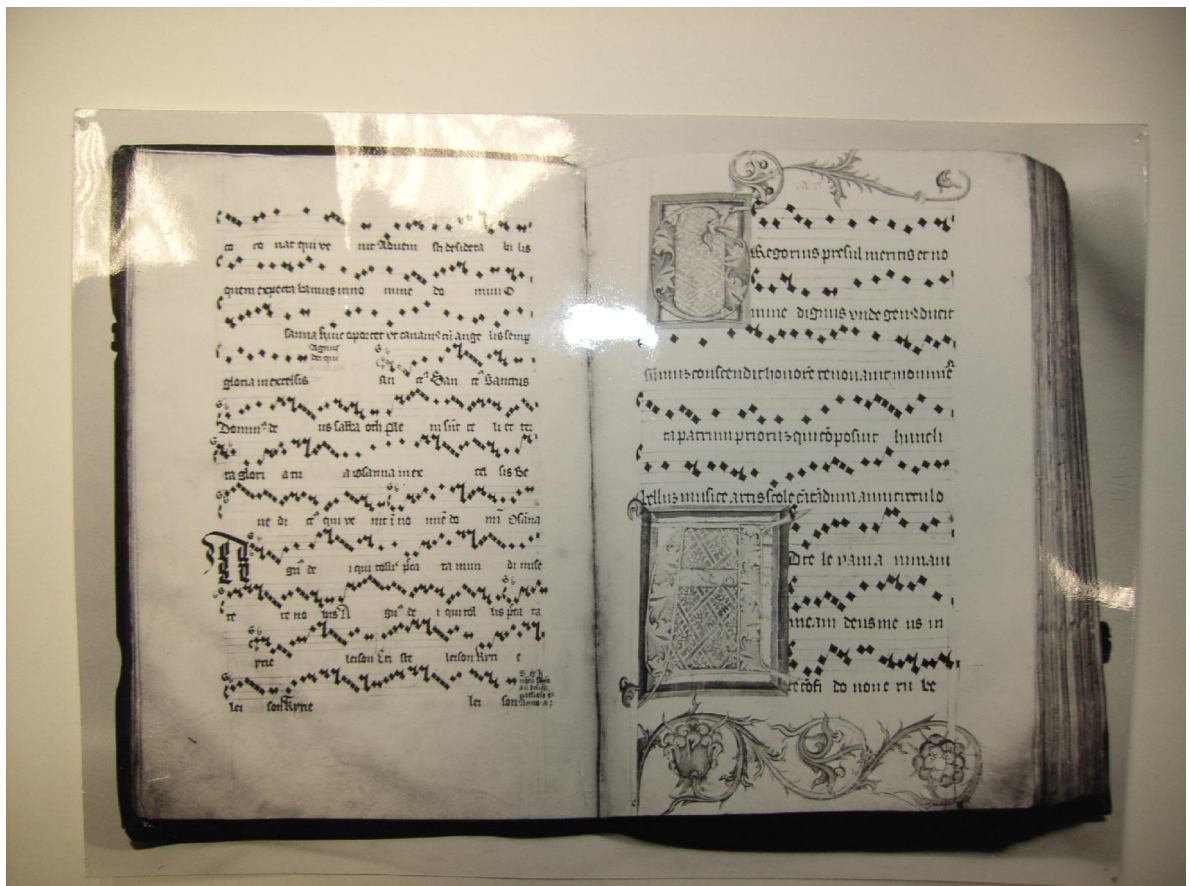 co ro nat qui ve nit Adveni sti desidera bi lis
quem expecta bamus in no mine do mini O
sanna hinc oportet ut canam9 cū ange lis semp
Agnus
dei qui
gloria in excelsis an ct9 San ct9 Sanctus
Domin9 de us saba oth ple ni sūt ce li et ter
ra glori a tu a osanna in ex cel sis Be
ne di ct9 qui ve nit i no mīe do mī Osāna
A gn9 de i qui tollis pcta mun di mise
re re no bis A gn9 de i qui tol lis pcta
kyrie leison Cri ste leison kyri e
lei son kyrie lei son
Gregorius presul meritis et no
mine dignus unde gen9 ducit
summuz conscendit honorē renovavit monimē
ta patrum prioruz qui cōposuit hunc li
belluz musice artis scole cātādum anni circulo
Ad te le vavi a nimam
meam deus me us in
te cōfi do non e ru be